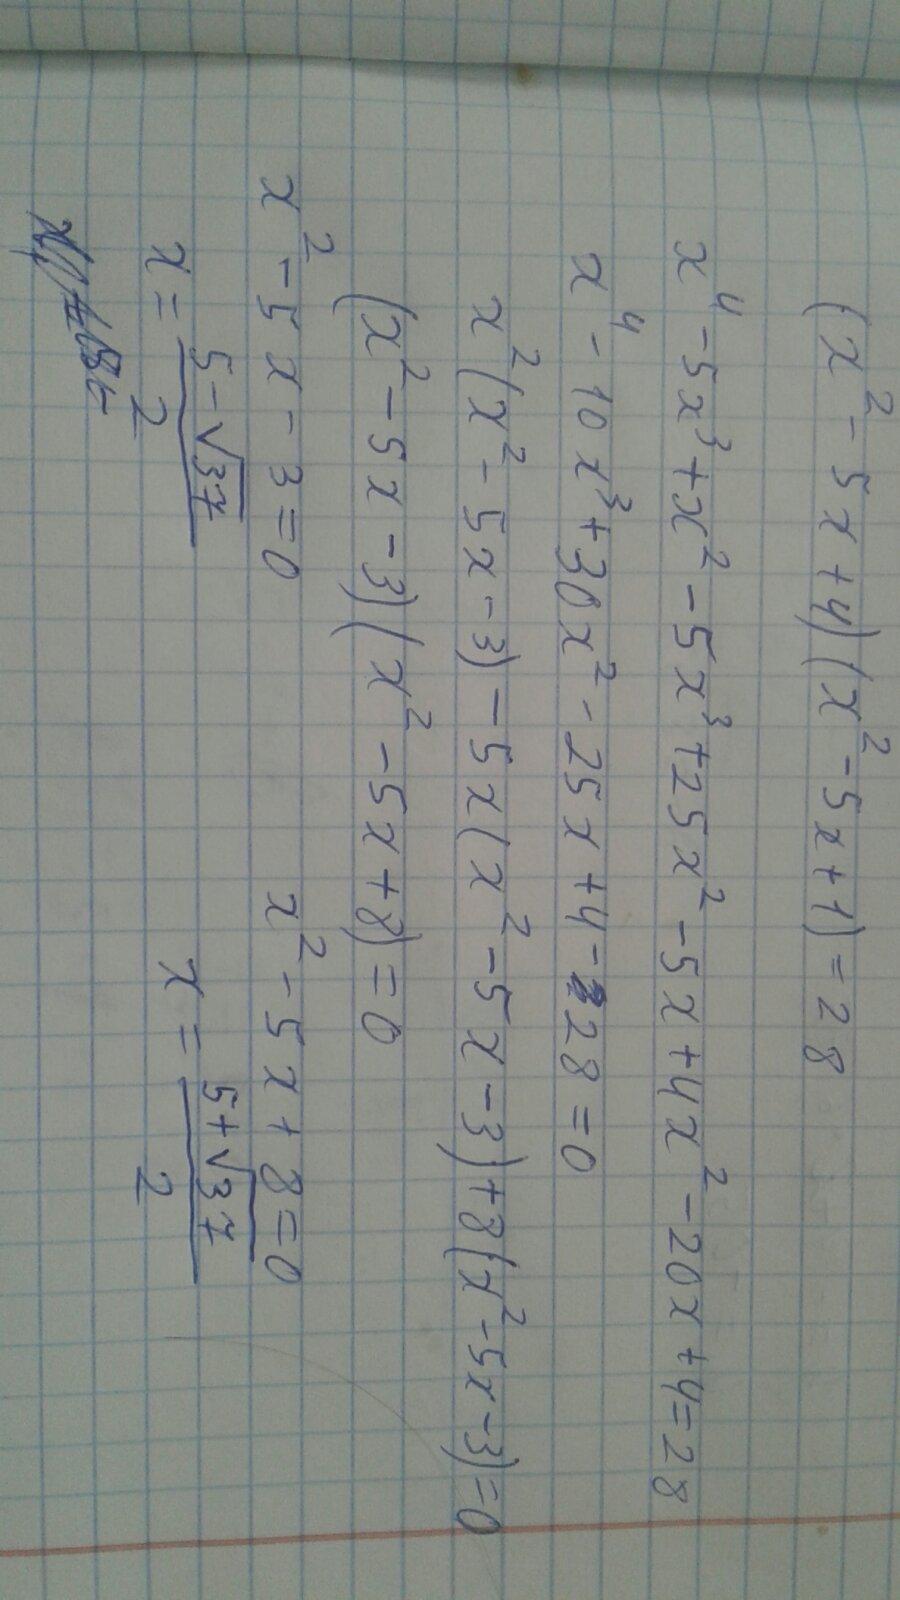 (x² - 5x + 4)(x² - 5x + 1) = 28
x⁴ - 5x³ + x² - 5x³ + 25x² - 5x + 4x² - 20x + 4 = 28
x⁴ - 10x³ + 30x² - 25x + 4 - 28 = 0
x²(x² - 5x - 3) - 5x(x² - 5x - 3) + 8(x² - 5x - 3) = 0
(x² - 5x - 3)(x² - 5x + 8) = 0
x² - 5x - 3 = 0 x² - 5x + 8 = 0
x = (5 - √37)/2 x = (5 + √37)/2